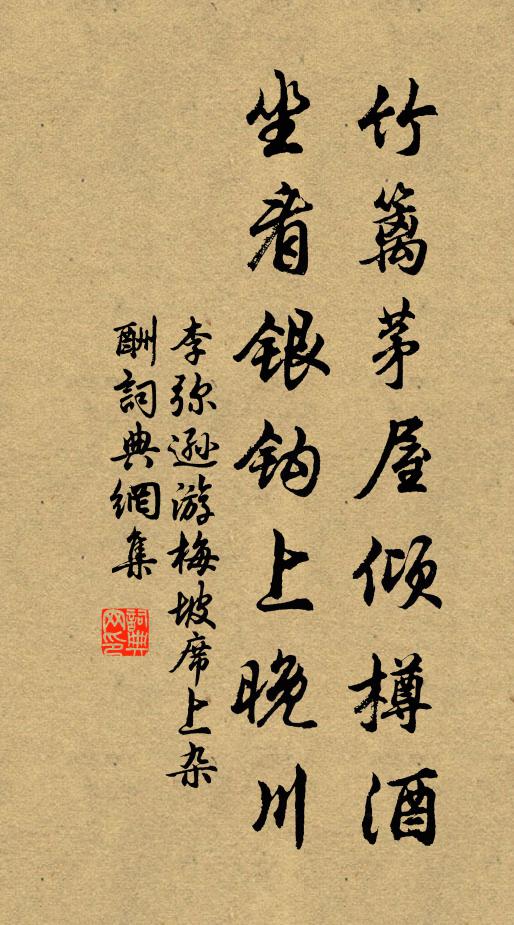 竹篱茅屋倾樽酒
坐看银钩上晚川
李弥逊游梅坡席上杂
酬詞典網集
詞典网印